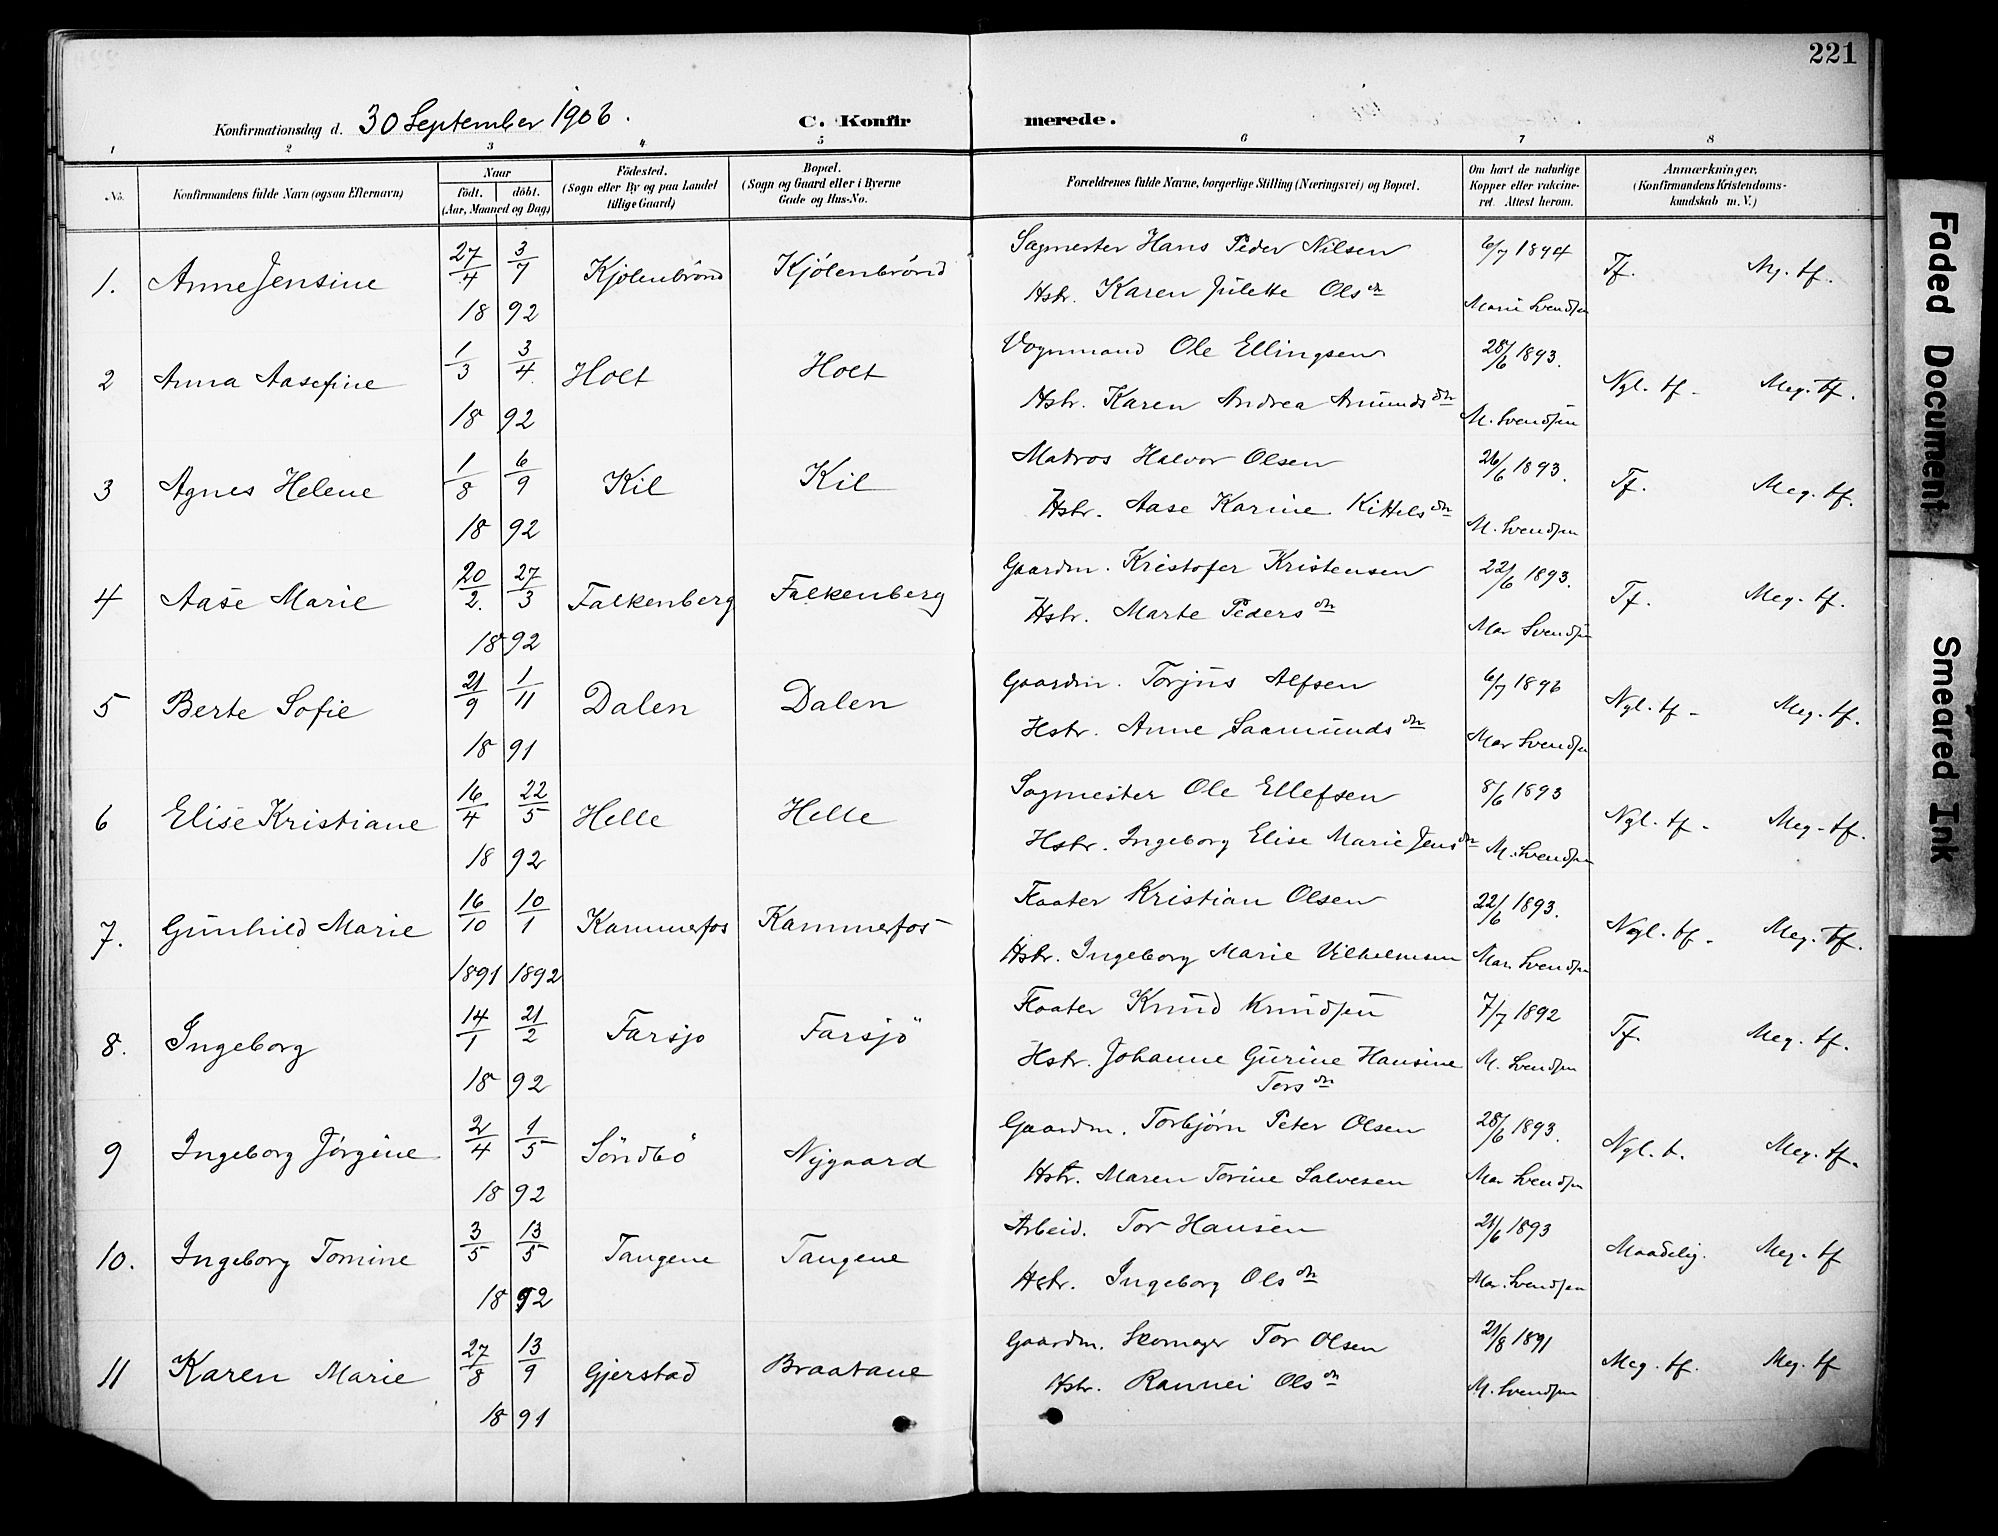 221
Konfirmationsdag d. 30 September 1906.
C. Konfirmerede.
1 2 3 4 5 6 7 8
No. Konfirmandens fulde Navn (ogsaa Efternavn) Naar födt. döbt. (Aar, Maaned og Dag) Födested. (Sogn eller By og paa Landet tillige Gaard) Bopæl. (Sogn og Gaard eller i Byerne Gade og Hus-No. Forældrenes fulde Navne, borgerlige Stilling (Næringsvei) og Bopæl. Om havt de naturlige Kopper eller vakcineret. Attest herom. Anmærkninger. (Konfirmandens Kristendomskundskab m. V.)
1. Anne Jensine 27/4 3/7 Kjölenbrönd Kjölenbrönd Sagmester Hans Peder Nilsen 6/7 1894 Tf. Mg. tf.
18 92 Hstr. Karen Julette Olsdn Marie Svendsen
2 Anna Aasefine 1/3 3/4 Holt Holt Vognmand Ole Ellingsen 28/6 1893. Ngl. tf. Meg. tf.
18 92 Hstr. Karen Andrea Amundsdn M. Svendsen
3 Agnes Helene 1/8 6/9 Kil Kil Matros Halvor Olsen 26/6 1893. Tf. Meg. tf.
18 92 Hstr. Aase Karine Kittelsdn M. Svendsen
4 Aase Marie 20/2. 27/3 Falkenberg Falkenberg Gaardm. Kristofer Kristensen 22/6 1893. Tf. Meg. tf.
18 92 Hstr. Marte Pedersdn Mar Svendsen
5 Berte Sofie 21/9 1/11 Dalen Dalen Gaardm. Torjus Alfsen 6/7 1896 Ngl. tf. Meg. tf.
18 91 Hstr. Anne Saamundsdn Mar Svendsen
6 Elise Kristiane 16/4 22/5 Helle Helle Sagmester Ole Ellefsen 8/6 1893 Ngl. tf. Meg. tf.
18 92 Hstr. Ingeborg Elise Marie Jensdn M. Svendsen
7. Gunhild Marie 16/10 10/1 Kammerfos Kammerfos Flaater Kristian Olsen 22/6 1893. Nogl. tf. Meg. tf.
1891 1892 Hstr. Ingeborg Marie Vilhelmsen Mar. Svendsen
8. Ingeborg 14/1 21/2 Farsjo Farsjö Flaater Knud Knudsen 7/7 1892 Tf. Meg. tf.
18 92 Hstr. Johanne Gurine Hansine M. Svendsen
Torsdn
9 Ingeborg Jørgine 2/4 1/5 Söndbö Nygaard Gaardm. Torbjørn Peter Olsen 28/6 1893. Ngl. t. Meg. tf.
18 92 Hstr. Maren Torine Salvesen Mar Svendsen
10. Ingeborg Tomine 3/5 13/5 Tangene Tangene Arbeid. Tor Hansen 21/6 1893 Maadelig. Meg. tf
18 92 Hstr. Ingeborg Olsdn Mar. Svendsen
11 Karen Marie 27/8 13/9 Gjerstad Braatane Gaardm. Skomager Tor Olsen 21/8 1891 Meg. tf. Meg. tf
18 91 Hstr. Rannei Olsdn M. Svendsen
Faded Document
Smeared Ink